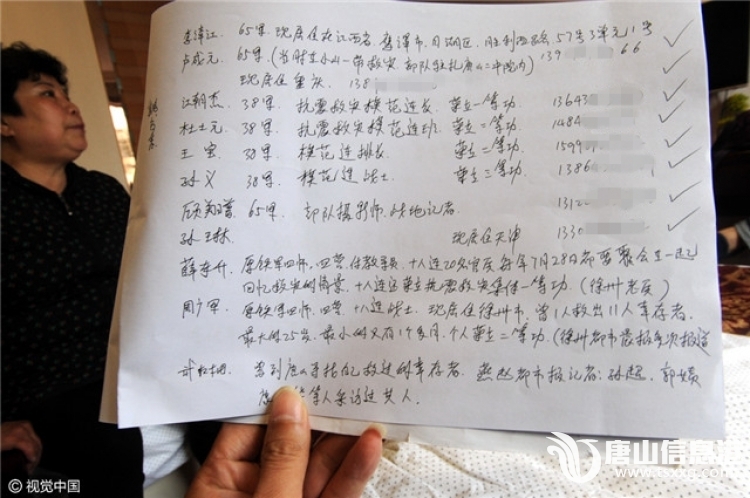 李泽江、65军、现居住在江西省、鹰潭市、月湖区、胜利 57号3单元1号
卢成元、65军、(当时在小山一带救灾、部队驻扎唐山二中院内) 139 66
现居住重庆、138
江朝杰、38军、抗震救灾模范连长、荣立一等功、13643
杜士元、38军、抗震救灾模范连班、荣立二等功、1484
王宝、38军、模范连排长、荣立二等功、1599
孙义、38军、模范连战士、荣立三等功、1386
65军、部队摄影师、战地记者、1312
孙玉林、现居住天津 1330
薛 升、原铁军四师、四营、付教导员、十八连20名官兵每年7月28日都要聚会在一起
回忆救灾的情景、十八连荣立抗震救灾集体一等功、(徐州老兵)
周广军、原铁军四师、四营、十八连战士、现居住徐州市、曾1人救出11人幸存者、
最大的25岁、最小的只有1个多月、个人荣立二等功、(徐州都市晨报多次报道
来到唐山寻找自己救过的幸存者、燕赵都市报记者:孙超、郭
等人采访过其人.
唐山信息港
© 视觉中国